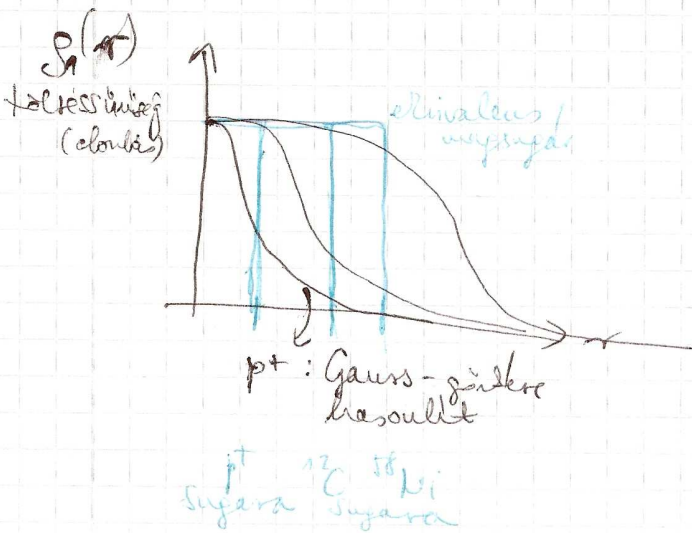 ρ₁(r)
töltéssűrűség
(eloszlás)
ekvivalens /
magsugár
r
p+ : Gauss-görbére
hasonlít
p+ ¹²C ⁵⁸Ni
sugara sugara